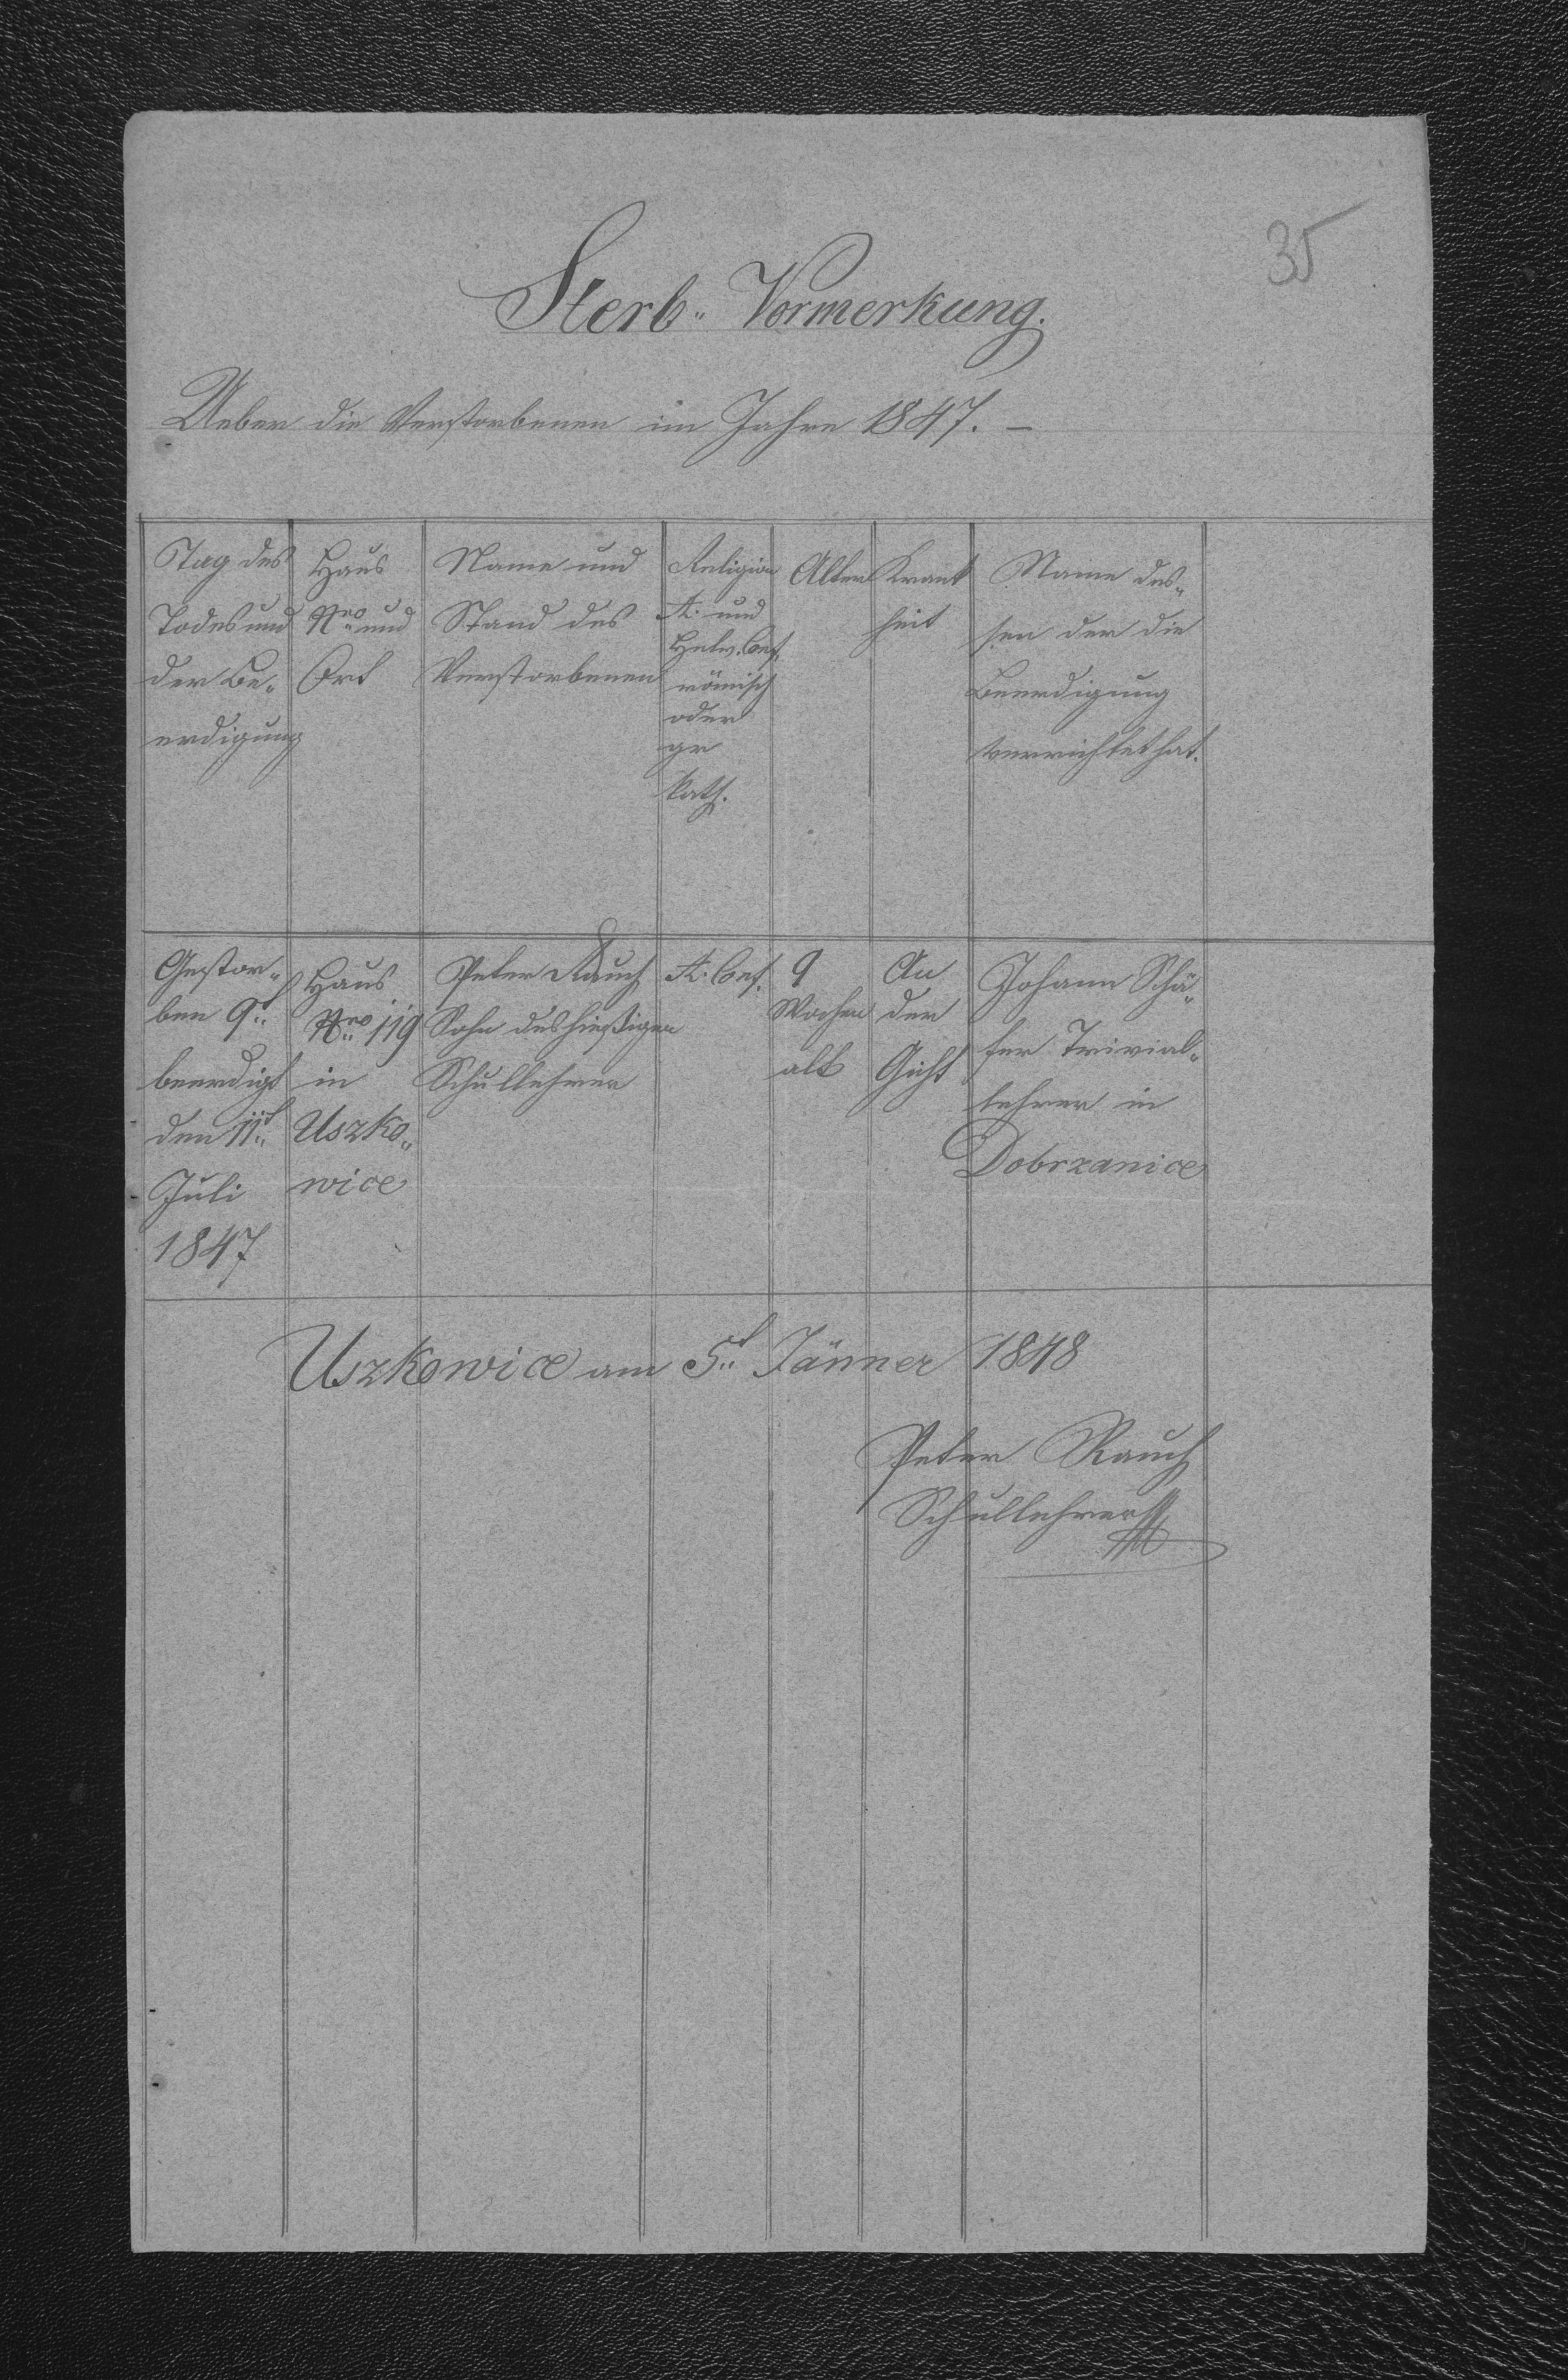 35
Sterb„ Vormerkung.
Ueber die Verstorbenen im Jahre 1847. –
Tag des
Todes und
der Be„
erdigung
Haus
Nro und
Ort
Name und
Stand des
Verstorbenen
Religion
A. und
Helv. Conf.
römisch
oder
gr
kath.
Alter
Krank
heit
Name des„
sen der die
Beerdigung
verrichtet hat.
Gestor„
ben 9t
beerdigt
den 11t
Juli
1847
Haus
Nro 119
in
Uszko„
wice
Peter Rauch
Sohn des hießigen
Schullehrer
A. Conf.
9
Wochen
alt
An
der
Gicht
Johann Schä„
fer Trivial„
lehrer in
Dobrzanice
Uszkowice am 5t Jänner 1848
Peter Rauch
Schullehrer